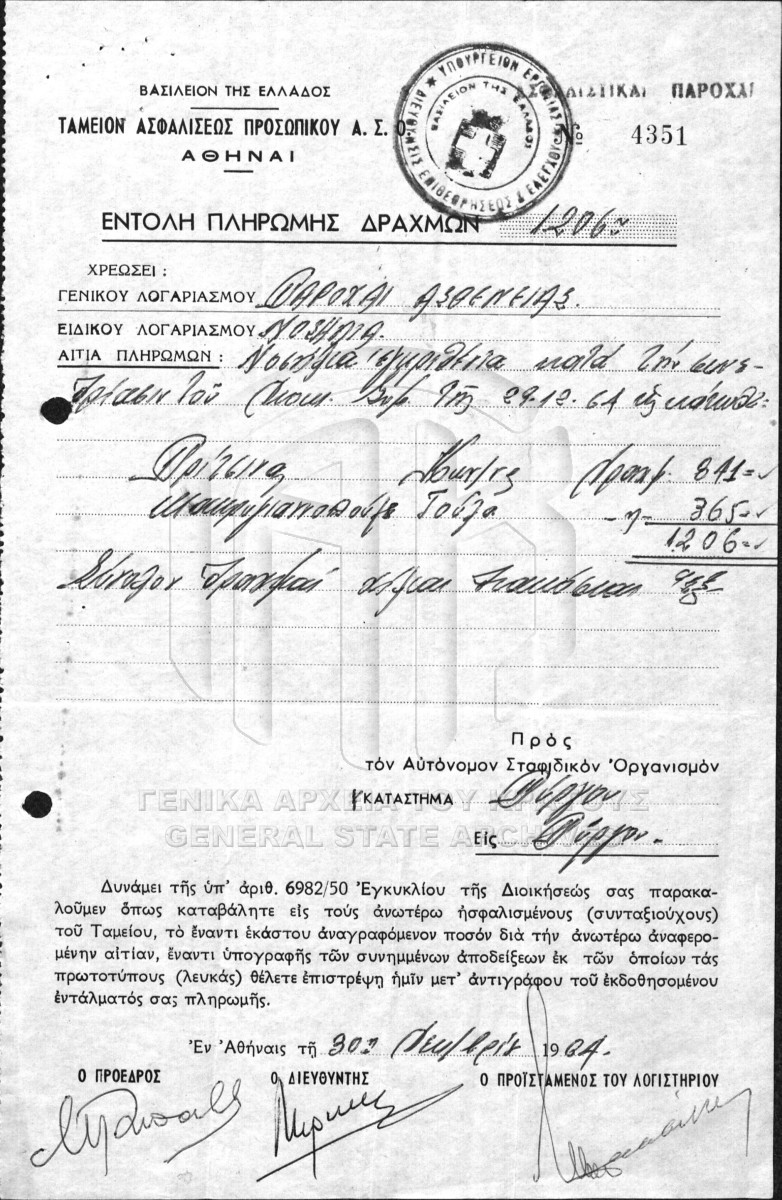 ΒΑΣΙΛΕΙΟΝ ΤΗΣ ΕΛΛΑΔΟΣ
ΤΑΜΕΙΟΝ ΑΣΦΑΛΙΣΕΩΣ ΠΡΟΣΩΠΙΚΟΥ Α. Σ. Ο.
ΑΘΗΝΑΙ
ΥΠΟΥΡΓΕΙΟΝ ΕΡΓΑΣΙΑΣ
ΔΙΕΥΘΥΝΣΙΣ ΕΠΙΘΕΩΡΗΣΕΩΣ & ΕΛΕΓΧΟΥ
ΒΑΣΙΛΕΙΟΝ ΤΗΣ ΕΛΛΑΔΟΣ
ΑΣΦΑΛΙΣΤΙΚΑΙ ΠΑΡΟΧΑΙ
Nº 4351
ΕΝΤΟΛΗ ΠΛΗΡΩΜΗΣ ΔΡΑΧΜΩΝ 1206=
ΧΡΕΩΣΕΙ :
ΓΕΝΙΚΟΥ ΛΟΓΑΡΙΑΣΜΟΥ ΠΑΡΟΧΑΙ ΑΣΘΕΝΕΙΑΣ
ΕΙΔΙΚΟΥ ΛΟΓΑΡΙΑΣΜΟΥ ΝΟΣΗΛΙΑ
ΑΙΤΙΑ ΠΛΗΡΩΜΩΝ : Νοσήλια ἐγκριθέντα κατά τήν συνε-
δρίασιν τοῦ Διοικ. Συμ. τῆς 29-12-64 ὡς κάτωθι:
Δραχμ. 841=
Τούλα -"- 365=
1206=
Σύνολον Δραχμαί χίλιαι διακόσιαι ἕξ
Πρός
τόν Αὐτόνομον Σταφιδικόν Ὀργανισμόν
ΥΚΑΤΑΣΤΗΜΑ Πύργου
Εἰς Πύργον.
ΓΕΝΙΚΑ ΑΡΧΕΙΑ ΤΟΥ ΚΡΑΤΟΥΣ
GENERAL STATE ARCHIVES
Δυνάμει τῆς ὑπ' ἀριθ. 6982/50 Ἐγκυκλίου τῆς Διοικήσεώς σας παρακα-
λοῦμεν ὅπως καταβάλητε εἰς τούς ἀνωτέρω ἠσφαλισμένους (συνταξιούχους)
τοῦ Ταμείου, τὸ ἔναντι ἑκάστου ἀναγραφόμενον ποσόν διά τήν ἀνωτέρω ἀναφερο-
μένην αἰτίαν, ἔναντι ὑπογραφῆς τῶν συνημμένων ἀποδείξεων ἐκ τῶν ὁποίων τάς
πρωτοτύπους (λευκάς) θέλετε ἐπιστρέψη ἡμῖν μετ' ἀντιγράφου τοῦ ἐκδοθησομένου
ἐντάλματός σας πληρωμῆς.
Ἐν Ἀθήναις τῇ 30ῃ Δεκ/βρίου 1964.
Ο ΠΡΟΕΔΡΟΣ Ο ΔΙΕΥΘΥΝΤΗΣ Ο ΠΡΟΪΣΤΑΜΕΝΟΣ ΤΟΥ ΛΟΓΙΣΤΗΡΙΟΥ